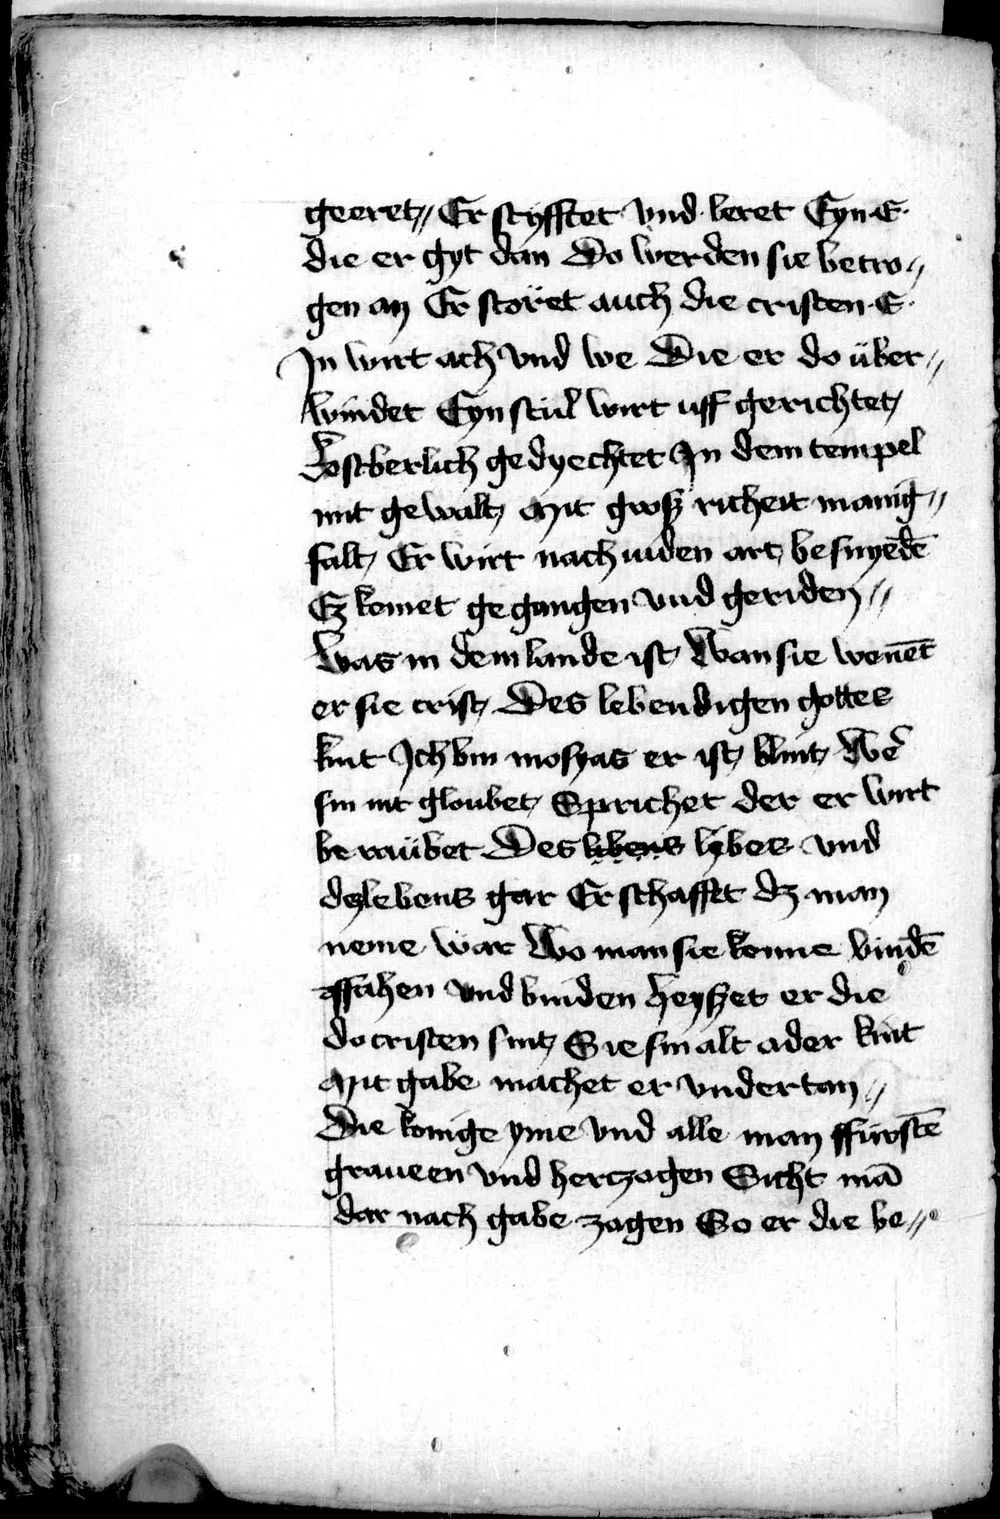 geeret„ Er styfftet vnd leret Eyn·E·
die er gyt dan Do werden sie betro„
gen an Er störet auch die cristen·E·
Jn wirt ach vnd we Die er do über„
windet Eyn stül wirt uff gerichtet,
kostberlich gedyechtet Jn dem tempel
mit gewalt, Mit groß richeit manig„
falt, Er wirt nach iuden art, besnyedē
Ez komet gegangen vnd geriden„
Was in dem lande ist, Wan sie wenēt
er sie crist, Des lebendigen gottes
kint Jch bin mosyas er ist, blint, Wer̄
sin nit gloubet, Sprichet der er wirt
beraübet Des lebens lybes vnd
dez lebens gar Er schaffet dz man
neme war Wo man sie konne vindē
affahen vnd binden heyßet er die
do cristen sint, Sie sin alt ader kint
Mit gabe machet er vndertan„
Die konige yme vnd alle man ffürstē
graueen vnd herczogen Sicht mā
dar nach gabe zogen So er die be„